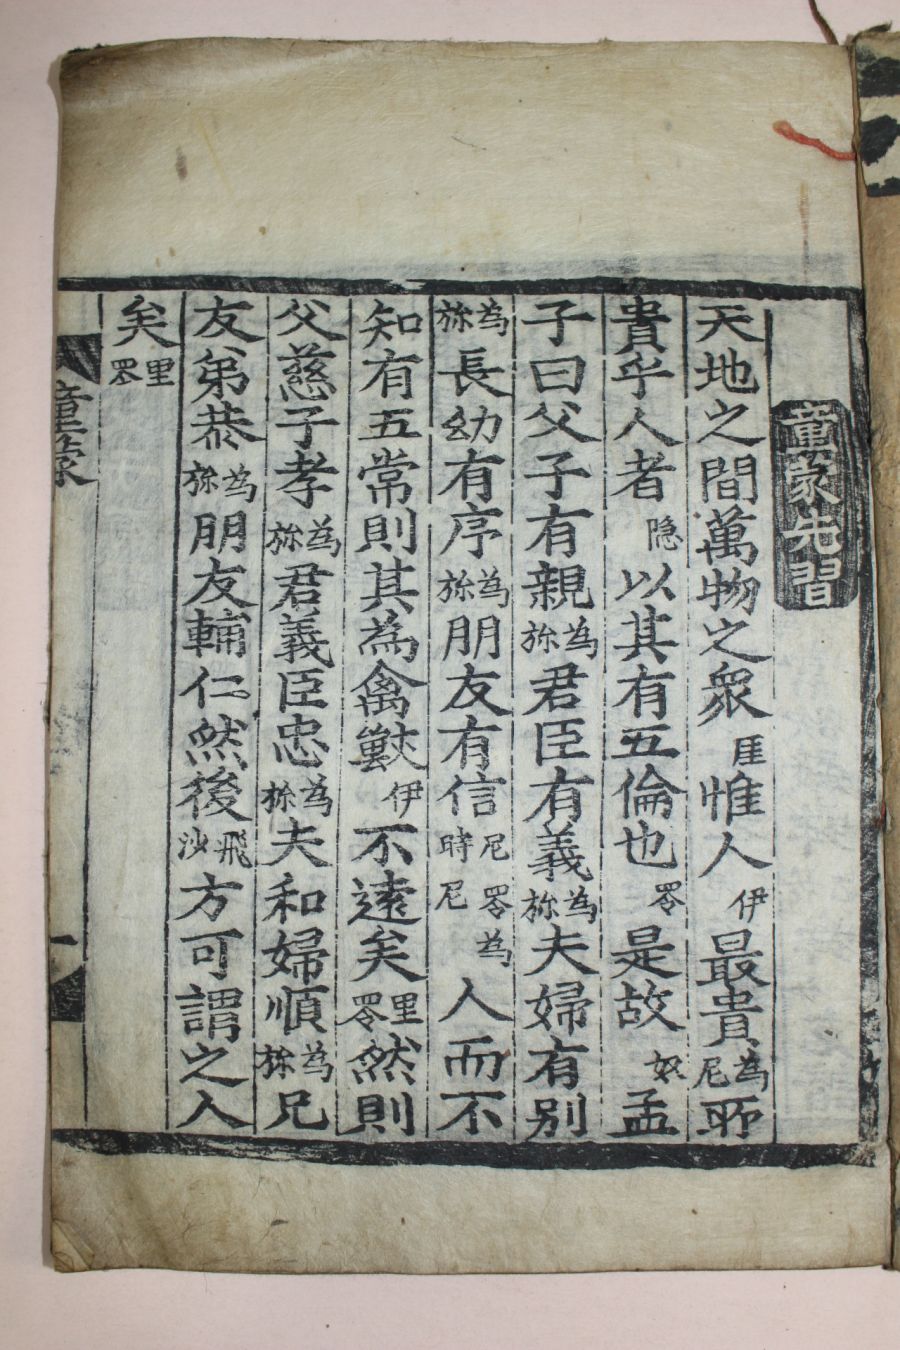 童蒙先習
天地之間萬物之衆厓惟人伊最貴為尼所
貴乎人者隐以其有五倫也罗是故奴孟
子曰父子有親為旀君臣有義為旀夫婦有別
為旀長幼有序為旀朋友有信尼罗為時尼人而不
知有五常則其為禽獸伊不遠矣里罗然則
父慈子孝為旀君義臣忠為旀夫和婦順為旀兄
友弟恭為旀朋友輔仁然後飛沙方可謂之人
矣里罗
童蒙
一